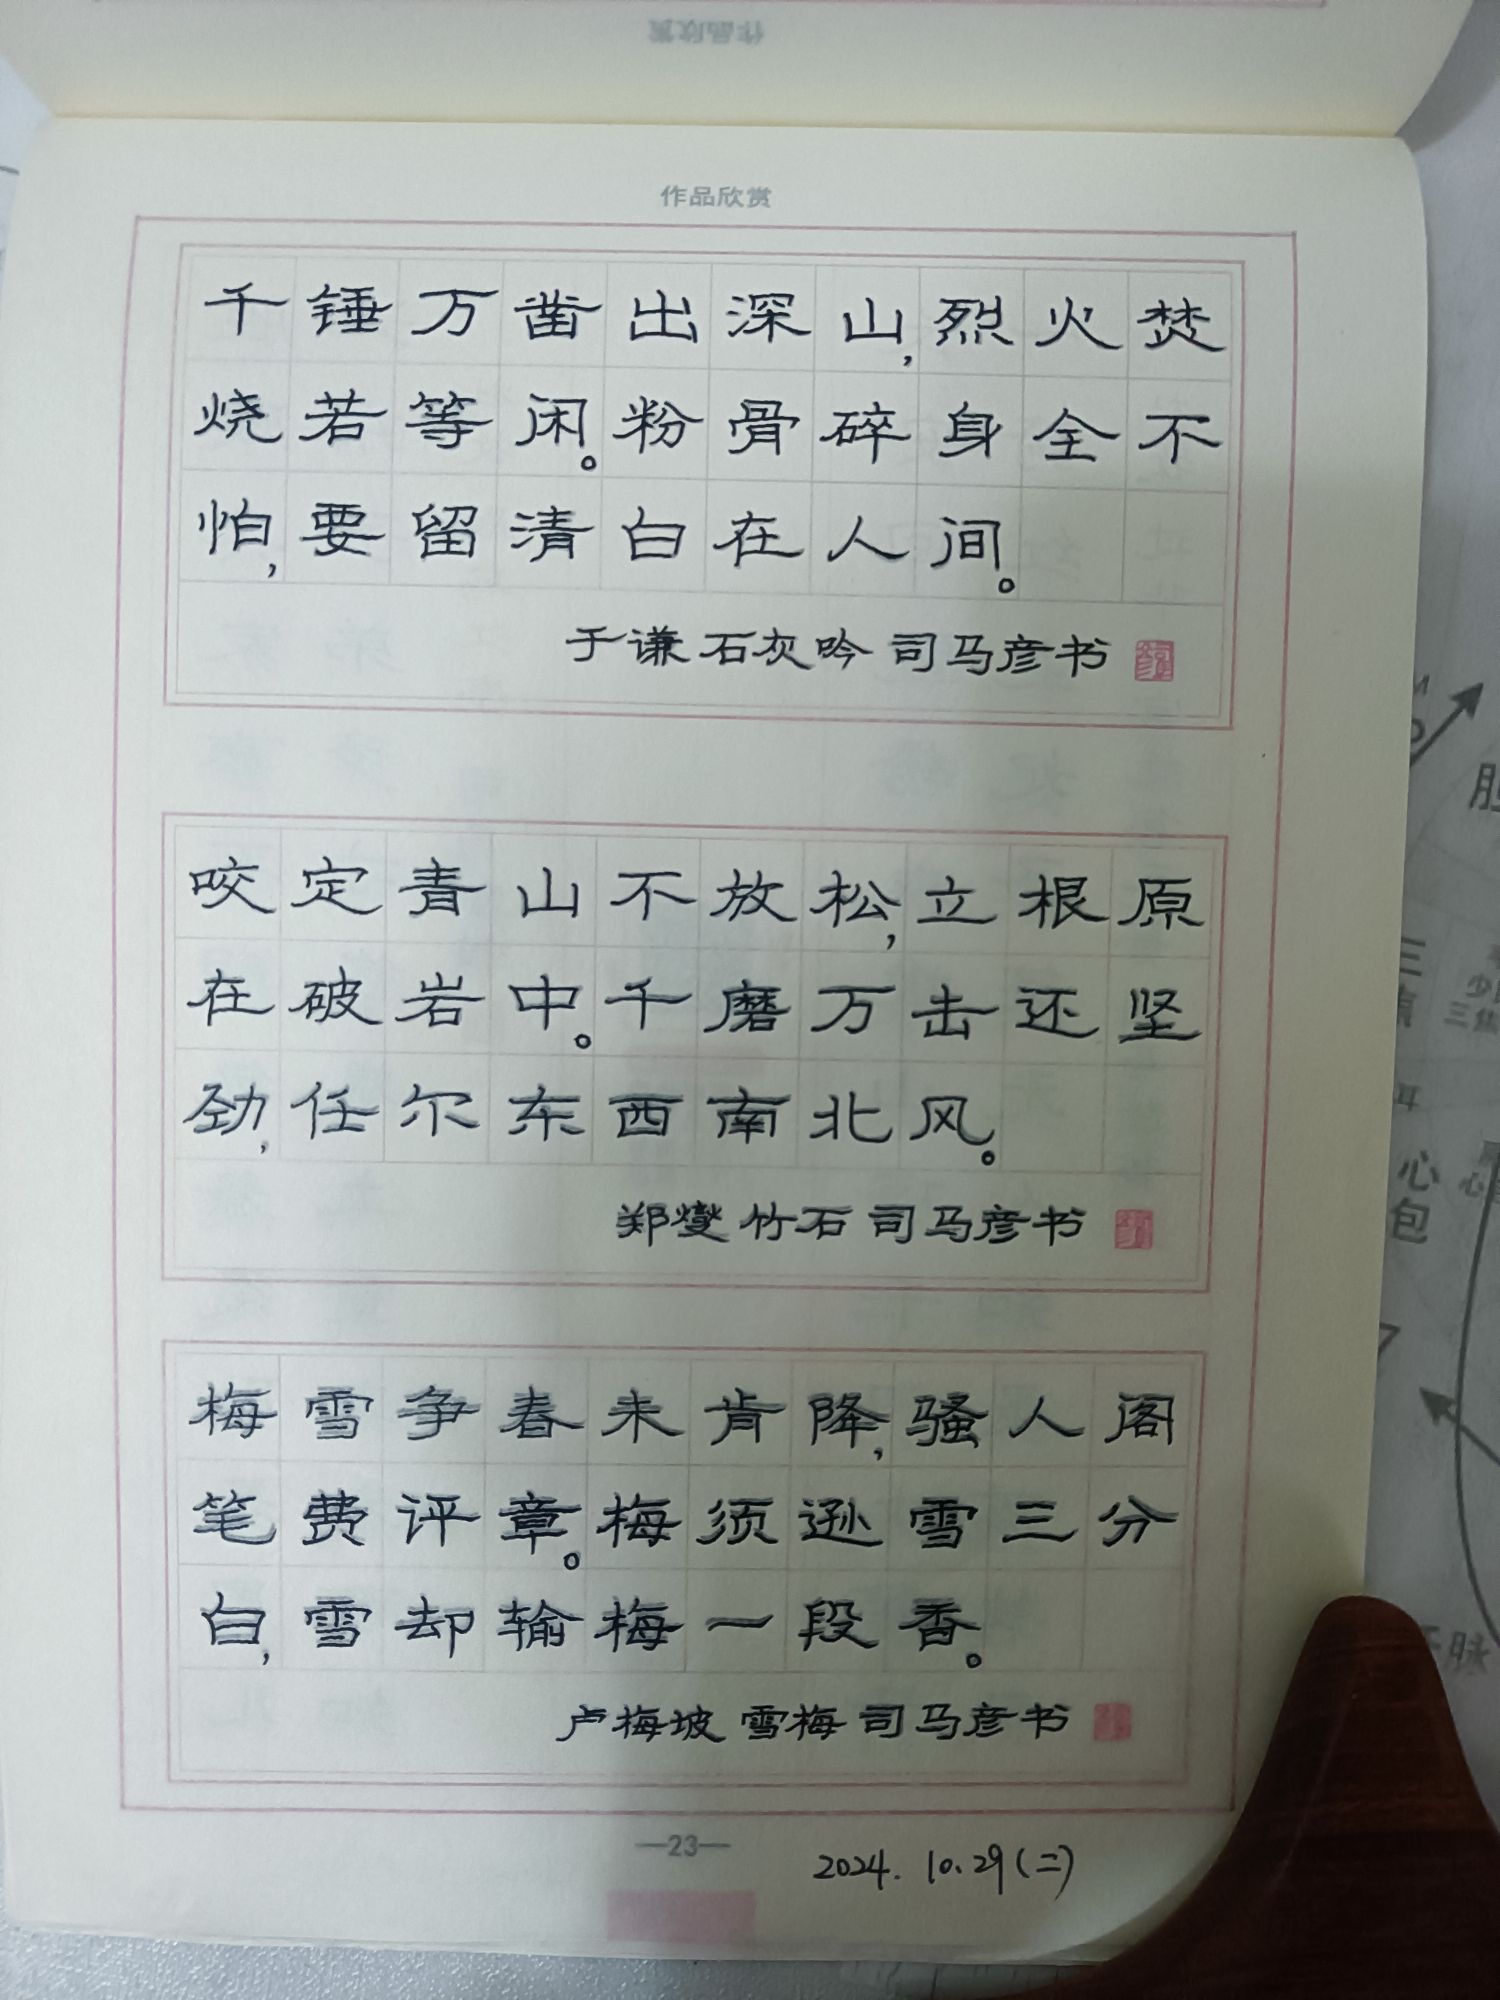 作品欣赏
作品欣赏
千锤万凿出深山,烈火焚
烧若等闲。粉骨碎身全不
怕,要留清白在人间。
于谦 石灰吟 司马彦书
咬定青山不放松,立根原
在破岩中。千磨万击还坚
劲,任尔东西南北风。
郑燮 竹石 司马彦书
梅雪争春未肯降,骚人阁
笔费评章。梅须逊雪三分
白,雪却输梅一段香。
卢梅坡 雪梅 司马彦书
—23—
2024.10.29(二)
三
少
三焦
耳
心
心包
脉